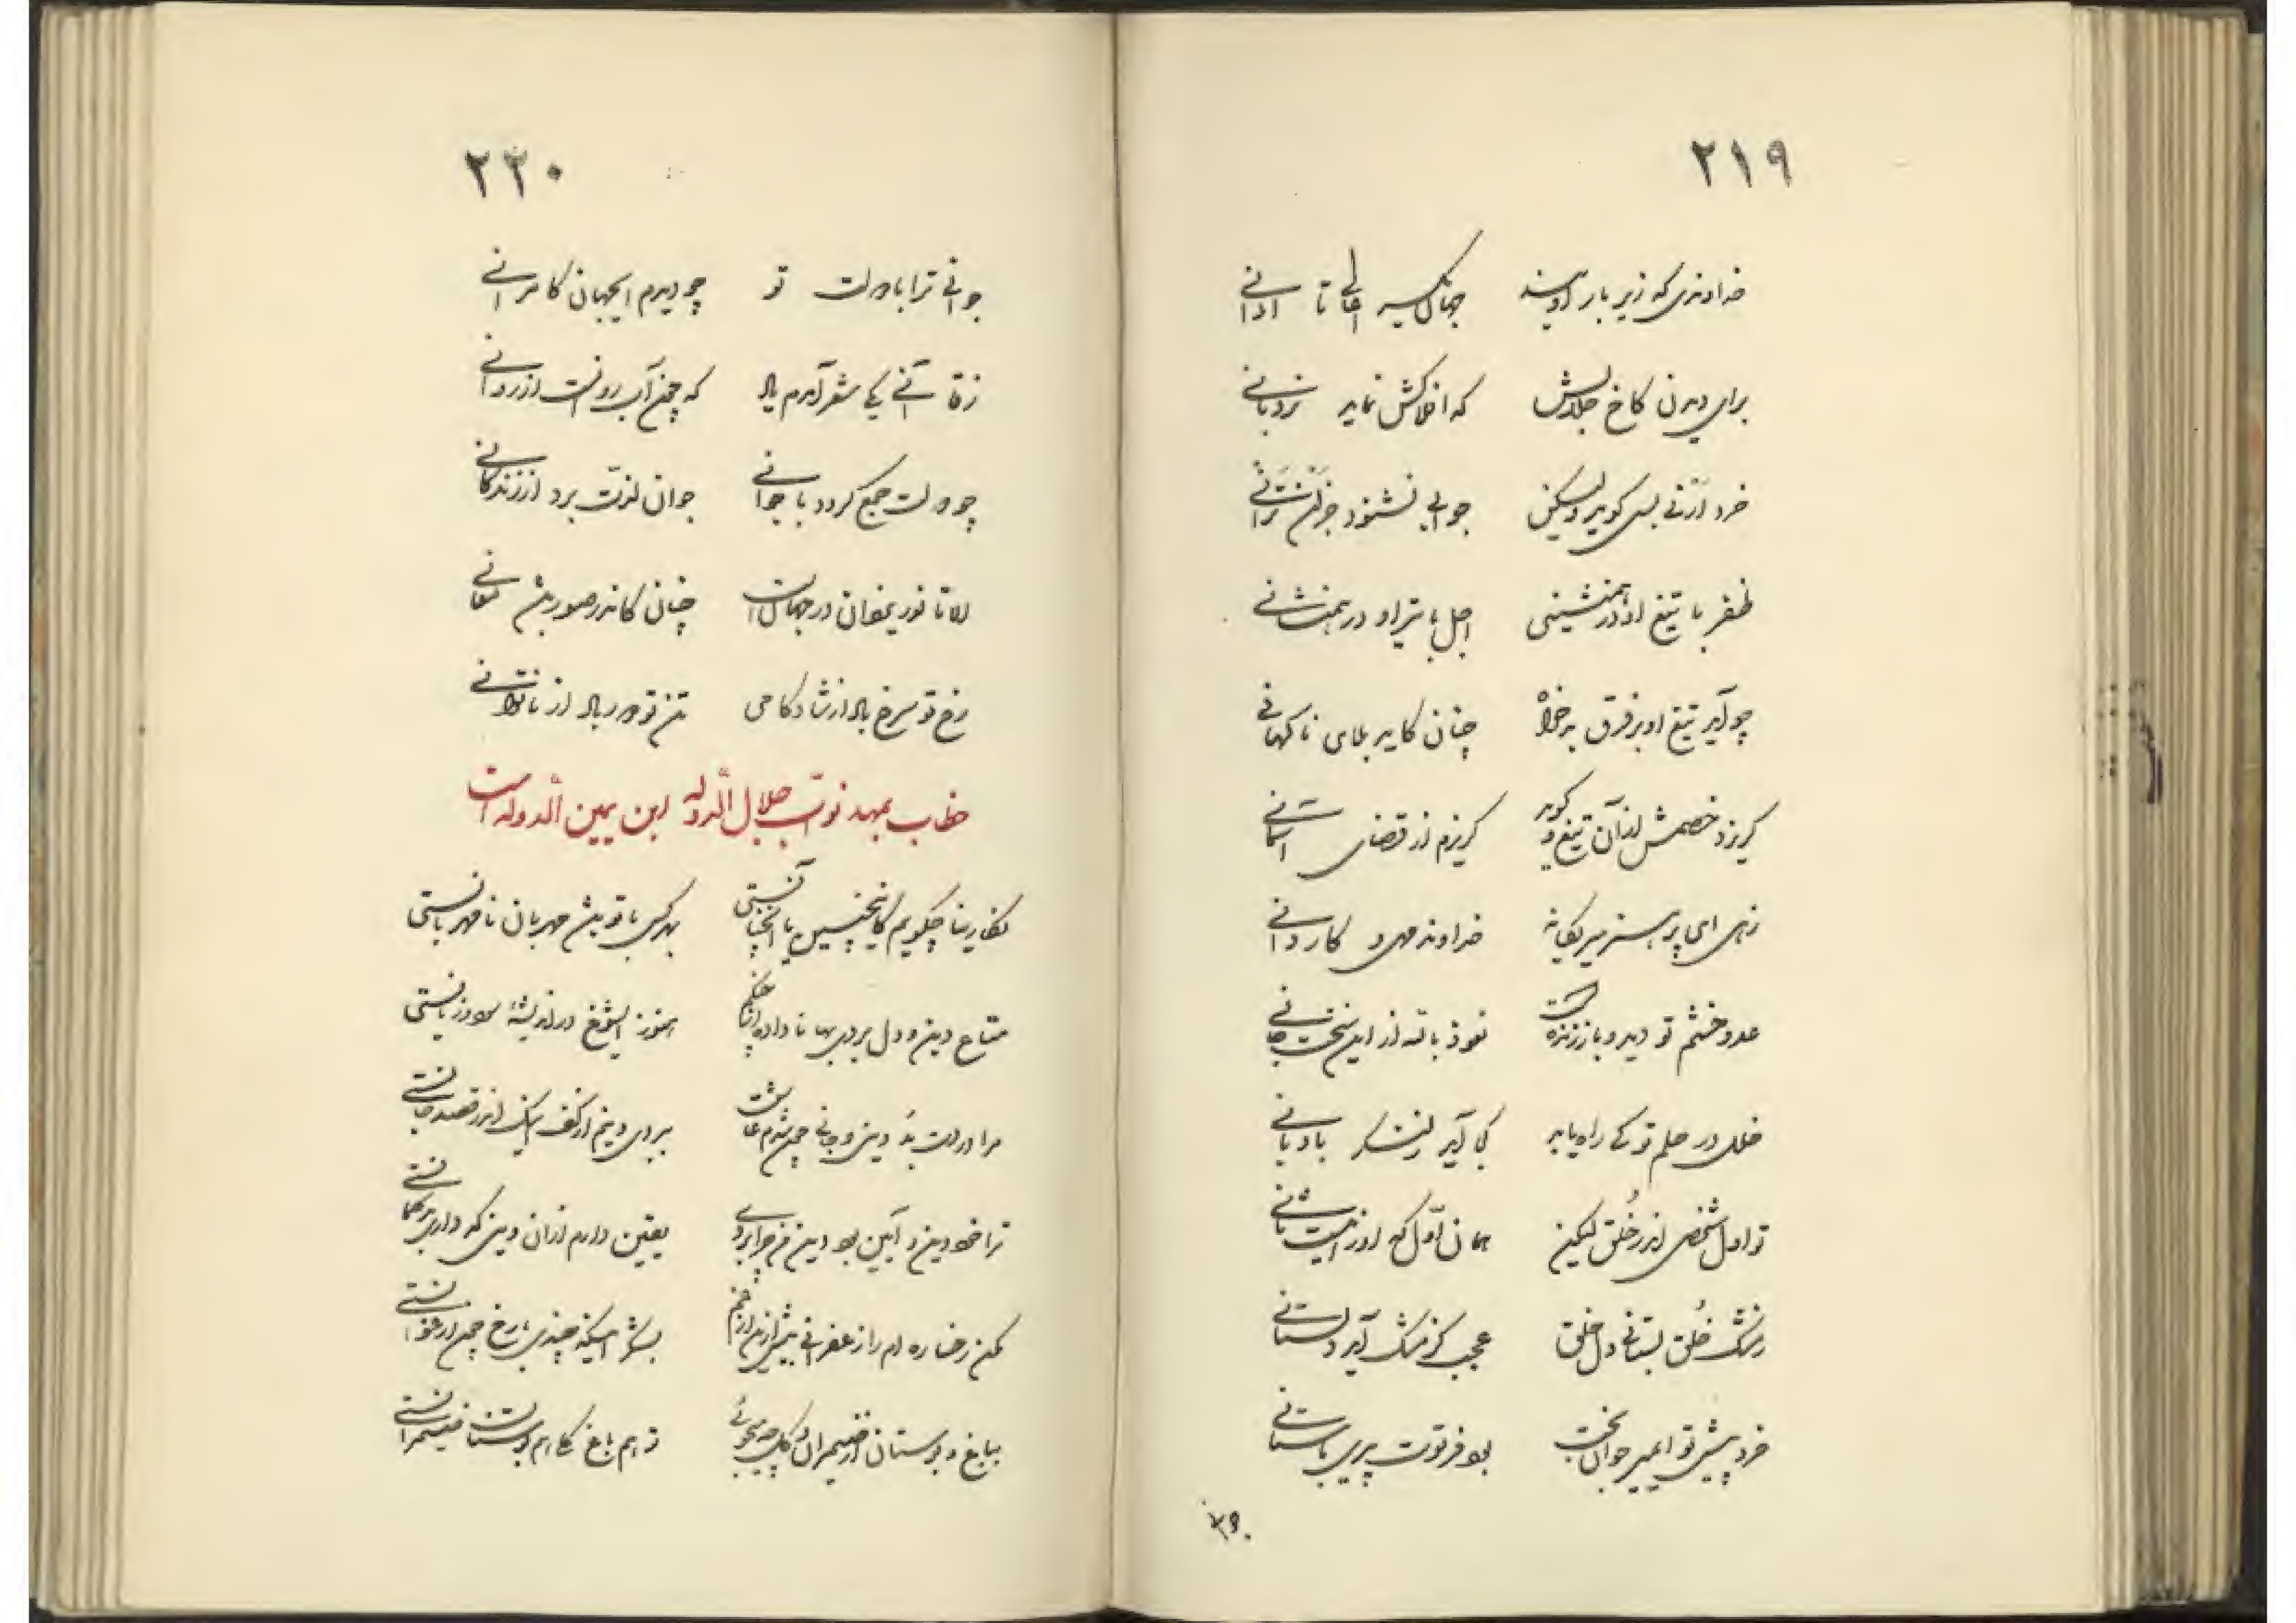 ۲۱۹
خداوندی که زیر بار اویند جهان یکسر اعالی تا ادانی
برای دیدن کاخ جلالش که افلاکش نماید نردبانی
خرد ارنی بسی گوید ولیکن جوابی نشنود جز لن ترانی
ظفر با تیغ او در همنشینی اجل با تیر او در همعنانی
چو آید تیغ او بر فرق بدخواه چنان کاید بلای ناگهانی
گریزد خصمش از آن تیغ و گوید گریزم از قضای آسمانی
زهی ای پر هنر میر یگانه خداوند مهی و کاردانی
عدو خشم تو دید و باز زنده است نعوذ بالله از این سخت جانی
خلل در حلم تو کی راه یابد کجا آید ز لنگر بادبانی
تو اول شخصی اندر خلق لیکن همان اول که او را نیست ثانی
ز مشک خلق بستانی دل خلق عجب کز مشک آید دلستانی
خرد پیش تو ای میر جوان بخت بود فرتوت پیری باستانی
۲۲۰
جوانی ترا با دولت تو چو دیدم ای جهان کامرانی
ز قاآنی یکی شعر آمدم یاد که چون آب روانست از روانی
چو دولت جمع گردد با جوانی جوان لذت برد از زندگانی
الا تا نور یزدان در جهان است چنان کاندر صور بینی معانی
رخ تو سرخ باد از شادکامی تن تو دور باد از ناتوانی
خطاب بمهد نواب جلال الدوله ابن یمین الدوله است
نگارینا چگویم کاینچنین یا آنچنانستی بهر کس با تو بیش مهربان نامهربانستی
متاع دین و دل بردی بها ناداده هنوز ای شوخ در اندیشه سود و زیانستی
مرا در دست بد دین و جانی چون شدم عاشق ببردی دینم از کف لیک اندر قصد جانستی
ترا خود دین و آیین بود دین من چرا بردی یقین دارم از آن دینی که داری بر گمانستی
مکن رخساره ام را زعفرانی بیش ازین از غم بشکر اینکه چندی با رخ چون ارغوانستی
بباغ و بوستان از ضیمران و گل چه میجوئی تو هم باغ گل هم بوستان ضیمرانستی